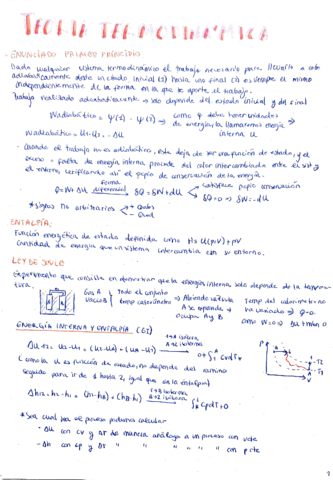 TEORÍA TERMODINÁMICA
- ENUNCIADO PRIMER PRINCIPIO
Dado cualquier sistema termodinámico el trabajo necesario para llevarlo a cabo
adiabáticamente desde un estado inicial (1) hasta uno final (2) es siempre el mismo
independientemente de la forma en la que se aporte el trabajo.
Trabajo realizado adiabáticamente → solo depende del estado inicial y del final
Wadiabático = φ(1) - φ(2) → como φ debe tener unidades
de energía, la llamaremos energía
interna U
Wadiabático = U1 - U2 = -ΔU
· Cuando el trabajo no es adiabático, este deja de ser una función de estado, y el
falta de energía interna procede del calor intercambiado entre el sist y
el entorno verificando así el ppio de conservación de la energía.
Q = W + ΔU
Forma
diferencial
δQ = δW + dU
satisface ppio conservación
δQ = 0 → δW = -dU
* signos no arbitrarios
ENTALPÍA:
Función energética de estado definida como H = U(p,V) + pV
Cantidad de energía que un sistema intercambia con su entorno.
LEY DE JOULE
Experimento que consiste en demostrar que la energía interna solo depende de la tempera-
tura.
Gas A
Vacío B
Todo el conjunto
temp calorímetro
→ Abriendo válvula
A se expande
ocupa A y B
Temp del calorímetro no
ha variado → Q = 0
como W = 0
ENERGÍA INTERNA Y ENTALPÍA (GI)
ΔU12 = U2 - U1 = (U2 - UA) + (UA - U1)
0 + ∫ CvdT
(como la U es función de estado, no depende del camino
seguido para ir de 1 hasta 2, igual que la entalpía)
Δh12 = h2 - h1
∫ CpdT + 0
* Sea cual sea el proceso puedo calcular
- ΔU con cv y ΔT de manera análoga a un proceso con v cte
- Δh con cp y ΔT " " " " " con p cte
1